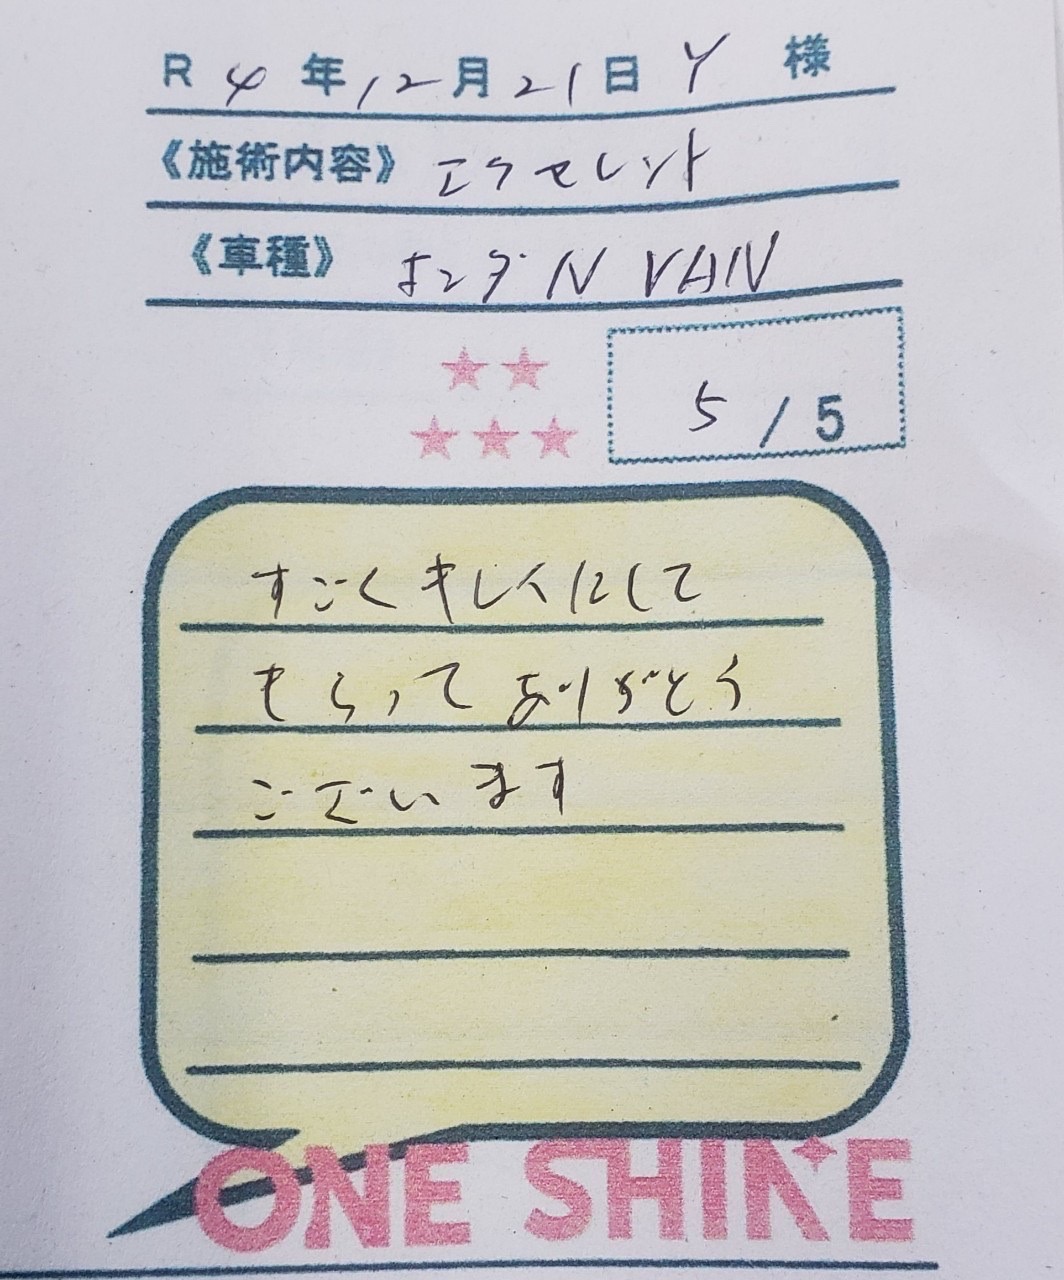 R 4 年 12 月 21 日 Y 様
《施術内容》 エクセレント
《車種》 ホンダ N VAN
5 / 5
すごくキレイにして
もらってありがとう
ございます
ONE SHINE